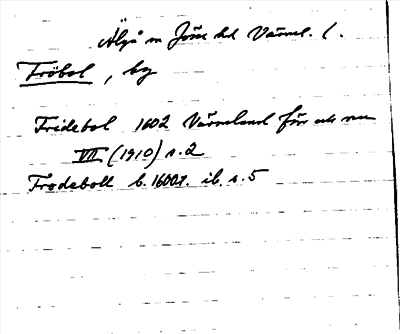 Älgå sn Jösse hd Värml. l.
Fröbol, by
Fridebol 1602 Värmland förr och nu
VIII (1910) s. 2
Frodeboll b. 1600t. ib. s. 5